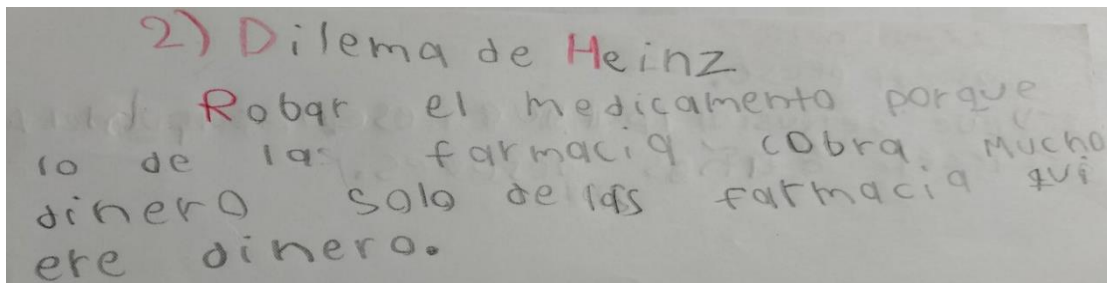 2) Dilema de Heinz
Robar el medicamento porque
lo de las farmacia cobra mucho
dinero solo de las farmacia qui
ere dinero.